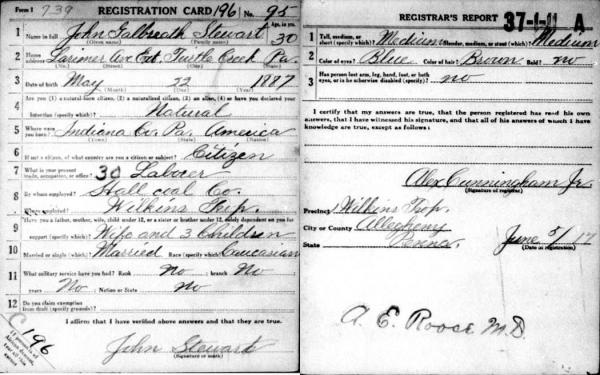 Form 1 739 REGISTRATION CARD 196 No. 95
1 Name in full John Galbreath Stewart Age, in yrs. 30
(Given name) (Family name)
2 Home address Larimer Ave Ext. Turtle Creek Pa.
(No.) (Street) (City) (State)
3 Date of birth May 22 1887
(Month) (Day) (Year)
4 Are you (1) a natural-born citizen, (2) a naturalized citizen, (3) an alien, (4) or have you declared your
intention (specify which)? Natural
5 Where were you born? Indiana Co. Pa. America
(Town) (State) (Nation)
6 If not a citizen, of what country are you a citizen or subject? Citizen
7 What is your present trade, occupation, or office? 30 Laborer
8 By whom employed? Hall coal Co.
Where employed? Wilkins Twp.
9 Have you a father, mother, wife, child under 12, or a sister or brother under 12, solely dependent on you for
support (specify which)? Wife and 3 Children
10 Married or single (which)? Married Race (specify which)? Caucasian
11 What military service have you had? Rank No ; branch No
years No ; Nation or State No
12 Do you claim exemption
from draft (specify grounds)?
I affirm that I have verified above answers and that they are true.
196
John Stewart
(Signature or mark)
REGISTRAR'S REPORT 37-1-11 A
1 Tall, medium, or short (specify which)? Medium Slender, medium, or stout (which)? Medium
2 Color of eyes? Blue Color of hair? Brown Bald? no
3 Has person lost arm, leg, hand, foot, or both
eyes, or is he otherwise disabled (specify)? no
I certify that my answers are true, that the person registered has read his own
answers, that I have witnessed his signature, and that all of his answers of which I have
knowledge are true, except as follows:
Alex Cunningham Jr.
(Signature of registrar)
Precinct Wilkins Twp.
City or County Allegheny
State Penna. June 5/17
(Date of registration)
A. E. Roose M.D.